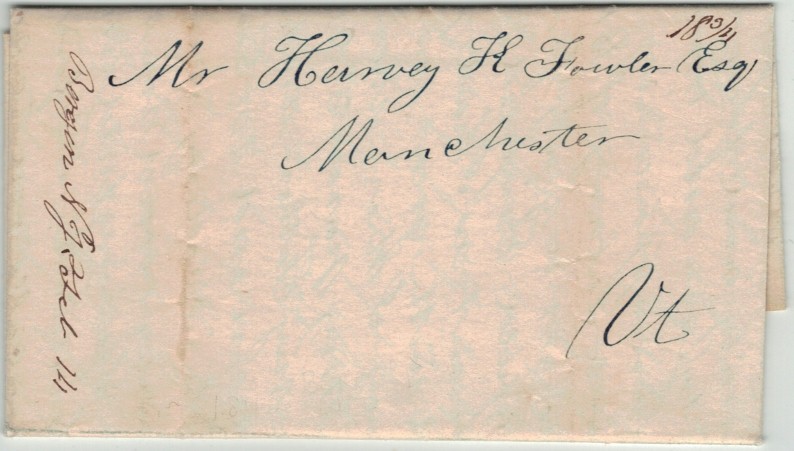 18 3/4
Mr Harvey K Fowler Esq
Manchester
Vt
Bergen N Y Feb 14